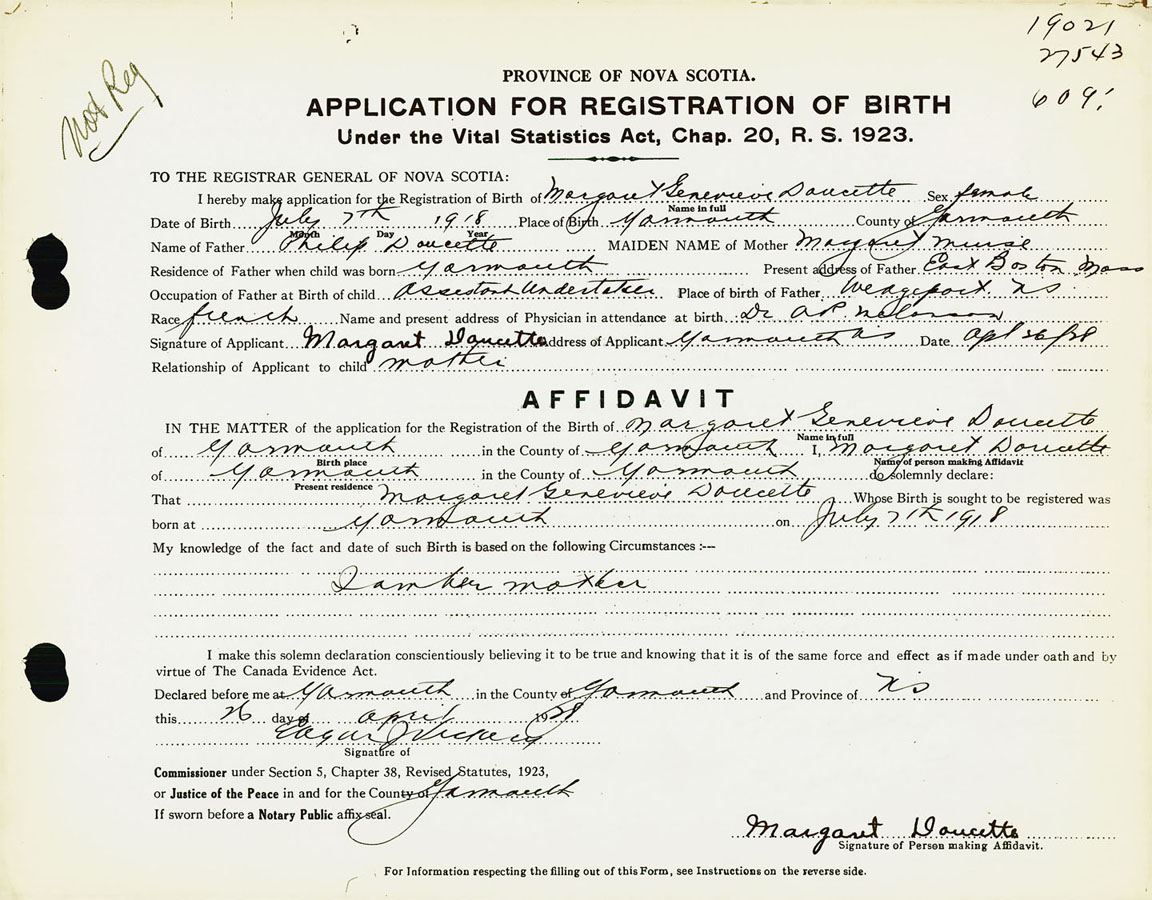 19021
27543
609!
Not Reg
PROVINCE OF NOVA SCOTIA.
APPLICATION FOR REGISTRATION OF BIRTH
Under the Vital Statistics Act, Chap. 20, R. S. 1923.
TO THE REGISTRAR GENERAL OF NOVA SCOTIA:
I hereby make application for the Registration of Birth of Margaret Genevieve Doucette Sex female
Name in full
Date of Birth July 7th 1918 Place of Birth Yarmouth County of Yarmouth
Month Day Year
Name of Father Philip Doucette MAIDEN NAME of Mother Margaret Muise
Residence of Father when child was born Yarmouth Present address of Father East Boston Mass
Occupation of Father at Birth of child Assistant Undertaker Place of birth of Father Wedgeport NS
Race french Name and present address of Physician in attendance at birth Dr A.P.
Signature of Applicant Margaret Doucette Address of Applicant Yarmouth NS Date Apl 26/28
Relationship of Applicant to child mother
AFFIDAVIT
IN THE MATTER of the application for the Registration of the Birth of Margaret Genevieve Doucette
Name in full
of Yarmouth in the County of Yarmouth I, Margaret Doucette
Birth place Name of person making Affidavit
of Yarmouth in the County of Yarmouth do solemnly declare:
Present residence
That Margaret Genevieve Doucette Whose Birth is sought to be registered was
born at Yarmouth on July 7th 1918
My knowledge of the fact and date of such Birth is based on the following Circumstances :—
I am her mother
I make this solemn declaration conscientiously believing it to be true and knowing that it is of the same force and effect as if made under oath and by
virtue of The Canada Evidence Act.
Declared before me at Yarmouth in the County of Yarmouth and Province of NS
this 26 day of April 1928
Edgar J Vickery
Signature of
Commissioner under Section 5, Chapter 38, Revised Statutes, 1923,
or Justice of the Peace in and for the County of Yarmouth
If sworn before a Notary Public affix seal.
Margaret Doucette
Signature of Person making Affidavit.
For Information respecting the filling out of this Form, see Instructions on the reverse side.